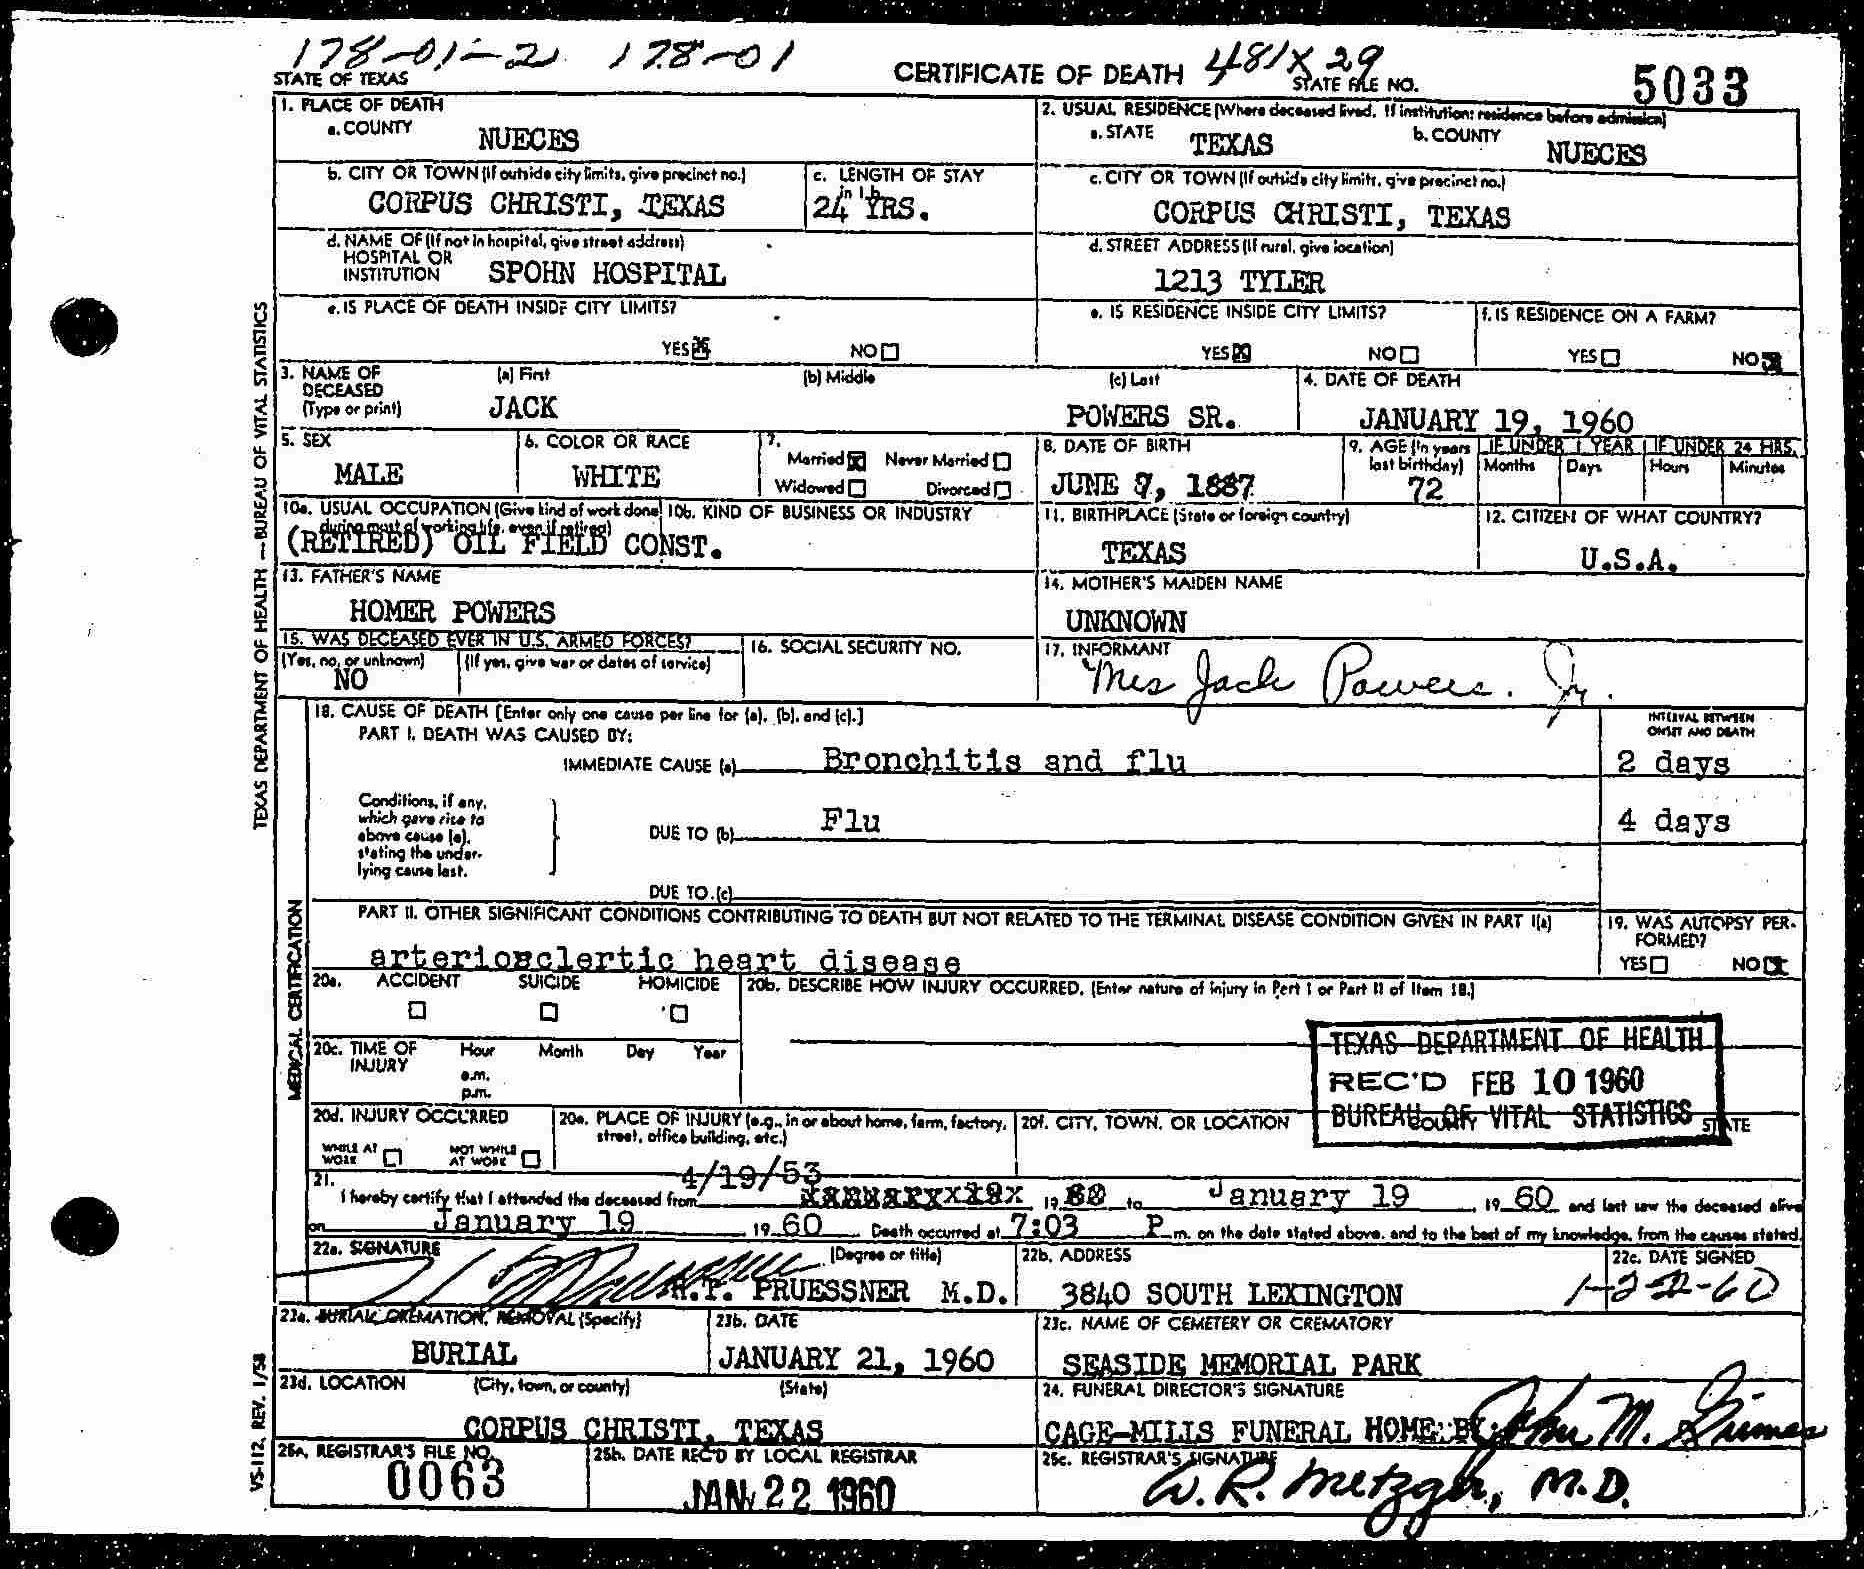 178-01-2 178-01 481X 29
STATE OF TEXAS
CERTIFICATE OF DEATH
STATE FILE NO.
5033
1. PLACE OF DEATH
a. COUNTY
NUECES
2. USUAL RESIDENCE (Where deceased lived. If institution: residence before admission)
a. STATE
TEXAS
b. COUNTY
NUECES
b. CITY OR TOWN (If outside city limits, give precinct no.)
CORPUS CHRISTI, TEXAS
c. LENGTH OF STAY
in 1.b
24 YRS.
c. CITY OR TOWN (If outside city limits, give precinct no.)
CORPUS CHRISTI, TEXAS
d. NAME OF (If not in hospital, give street address)
HOSPITAL OR
INSTITUTION
SPOHN HOSPITAL
d. STREET ADDRESS (If rural, give location)
1213 TYLER
e. IS PLACE OF DEATH INSIDE CITY LIMITS?
YES NO
e. IS RESIDENCE INSIDE CITY LIMITS?
YES NO
f. IS RESIDENCE ON A FARM?
YES NO
3. NAME OF
DECEASED
(Type or print)
(a) First
JACK
(b) Middle
(c) Last
POWERS SR.
4. DATE OF DEATH
JANUARY 19, 1960
5. SEX
MALE
6. COLOR OR RACE
WHITE
7.
Married Never Married
Widowed Divorced
8. DATE OF BIRTH
JUNE 7, 1887
9. AGE (In years
last birthday)
72
IF UNDER 1 YEAR
Months Days
IF UNDER 24 HRS.
Hours Minutes
10a. USUAL OCCUPATION (Give kind of work done
during most of working life, even if retired)
(RETIRED) OIL FIELD CONST.
10b. KIND OF BUSINESS OR INDUSTRY
11. BIRTHPLACE (State or foreign country)
TEXAS
12. CITIZEN OF WHAT COUNTRY?
U.S.A.
13. FATHER'S NAME
HOMER POWERS
14. MOTHER'S MAIDEN NAME
UNKNOWN
15. WAS DECEASED EVER IN U.S. ARMED FORCES?
(Yes, no, or unknown)
NO
(If yes, give war or dates of service)
16. SOCIAL SECURITY NO.
17. INFORMANT
Mrs Jack Powers. Jr.
18. CAUSE OF DEATH [Enter only one cause per line for (a), (b), and (c).]
PART I. DEATH WAS CAUSED BY:
INTERVAL BETWEEN
ONSET AND DEATH
IMMEDIATE CAUSE (a)
Bronchitis and flu
2 days
Conditions, if any,
which gave rise to
above cause (a),
stating the under-
lying cause last.
DUE TO (b)
Flu
4 days
DUE TO (c)
PART II. OTHER SIGNIFICANT CONDITIONS CONTRIBUTING TO DEATH BUT NOT RELATED TO THE TERMINAL DISEASE CONDITION GIVEN IN PART I(a)
arteriosclertic heart disease
19. WAS AUTOPSY PER-
FORMED?
YES NO
20a. ACCIDENT SUICIDE HOMICIDE
20b. DESCRIBE HOW INJURY OCCURRED. (Enter nature of injury in Part I or Part II of Item 18.)
20c. TIME OF
INJURY
Hour Month Day Year
a.m.
p.m.
TEXAS DEPARTMENT OF HEALTH
REC'D FEB 10 1960
BUREAU OF VITAL STATISTICS
20d. INJURY OCCURRED
WHILE AT
WORK
NOT WHILE
AT WORK
20e. PLACE OF INJURY (e.g., in or about home, farm, factory,
street, office building, etc.)
20f. CITY, TOWN, OR LOCATION
COUNTY
STATE
21.
4/19/53
I hereby certify that I attended the deceased from 19 to January 19, 19 60 and last saw the deceased alive
on January 19 19 60 Death occurred at 7:03 P m. on the date stated above, and to the best of my knowledge, from the causes stated.
22a. SIGNATURE
(Degree or title)
H.T. PRUESSNER M.D.
22b. ADDRESS
3840 SOUTH LEXINGTON
22c. DATE SIGNED
1-22-60
23a. BURIAL, CREMATION, REMOVAL (Specify)
BURIAL
23b. DATE
JANUARY 21, 1960
23c. NAME OF CEMETERY OR CREMATORY
SEASIDE MEMORIAL PARK
23d. LOCATION (City, town, or county) (State)
CORPUS CHRISTI, TEXAS
24. FUNERAL DIRECTOR'S SIGNATURE
CAGE-MILLS FUNERAL HOME: BY: John M. Grimes
25a. REGISTRAR'S FILE NO.
0063
25b. DATE REC'D BY LOCAL REGISTRAR
JAN 22 1960
25c. REGISTRAR'S SIGNATURE
W.R. Metzger, M.D.
TEXAS DEPARTMENT OF HEALTH — BUREAU OF VITAL STATISTICS
MEDICAL CERTIFICATION
VS-112, REV. 1/58